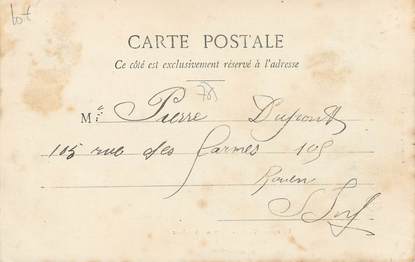 lot
CARTE POSTALE
Ce côté est exclusivement réservé à l'adresse
78
M Pierre Dupont
105 rue des Carmes 105
Rouen
S Inf.